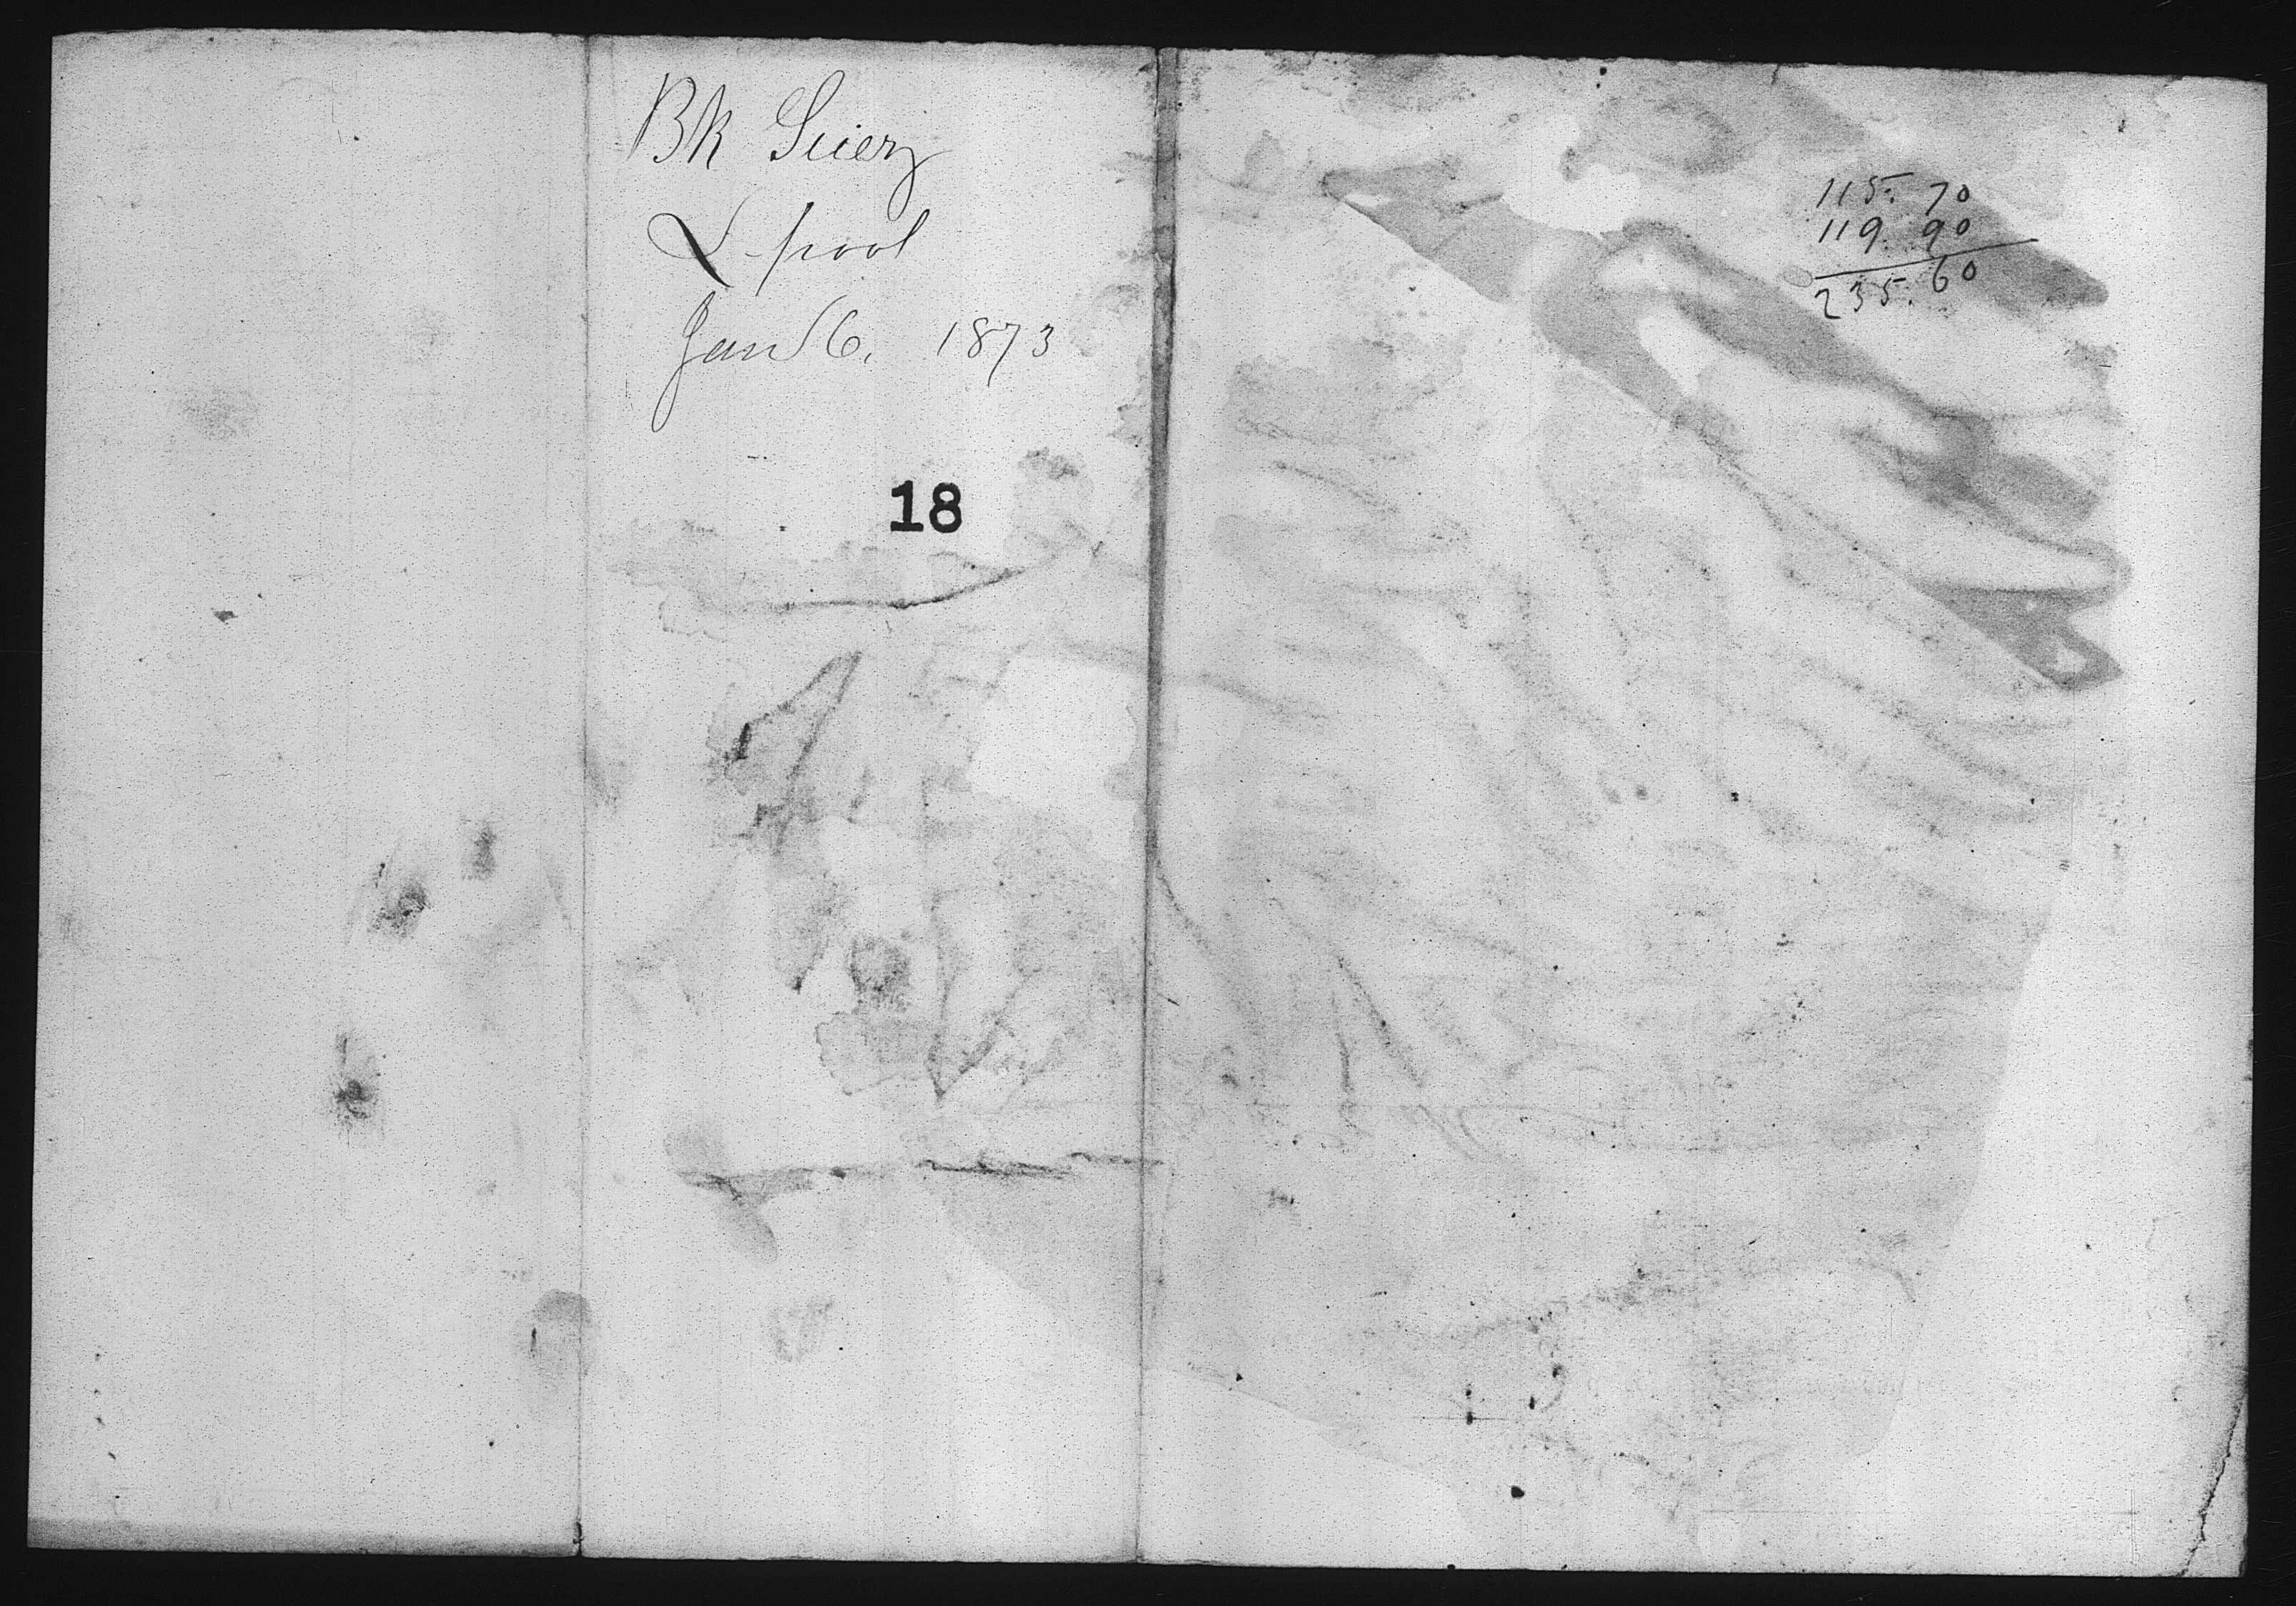 Bk Suez
L-pool
Jan 6, 1873
18
115. 70
119. 90
235. 60